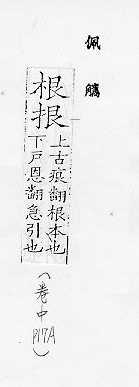 佩觿
根拫
上古痕翻根本也
下戸恩翻急引也
(巻中
P17A)